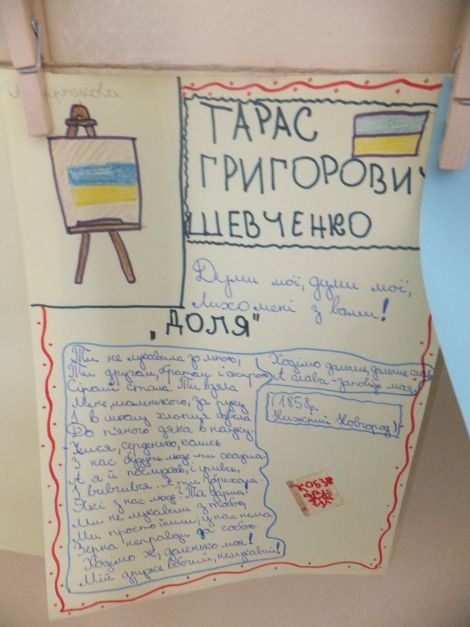 ТАРАС
ГРИГОРОВИЧ
ШЕВЧЕНКО
Думи мої, думи мої,
Лихо мені з вами!
"ДОЛЯ"
Ти не лукавила зо мною,
Ти другом, братом і сестрою
Сіромі стала. Ти взяла
Мене, маленького, за руку
І в школу хлопця одвела
До п'яного дяка в науку.
Учися, серденько, колись
З нас будуть люде - ти сказала
А я й послухав, і учивсь,
І вивчився. А ти збрехала.
Які з нас люде? Та дарма!
Ми не лукавили з тобою,
Ми просто йшли; у нас нема
Зерна неправди за собою.
Ходімо ж, доленько моя!
Мій друже вбогий, нелукавий!
Ходімо дальше, дальше слава,
А слава - заповідь моя.
1858р.
Нижній Новгород
КОБЗ